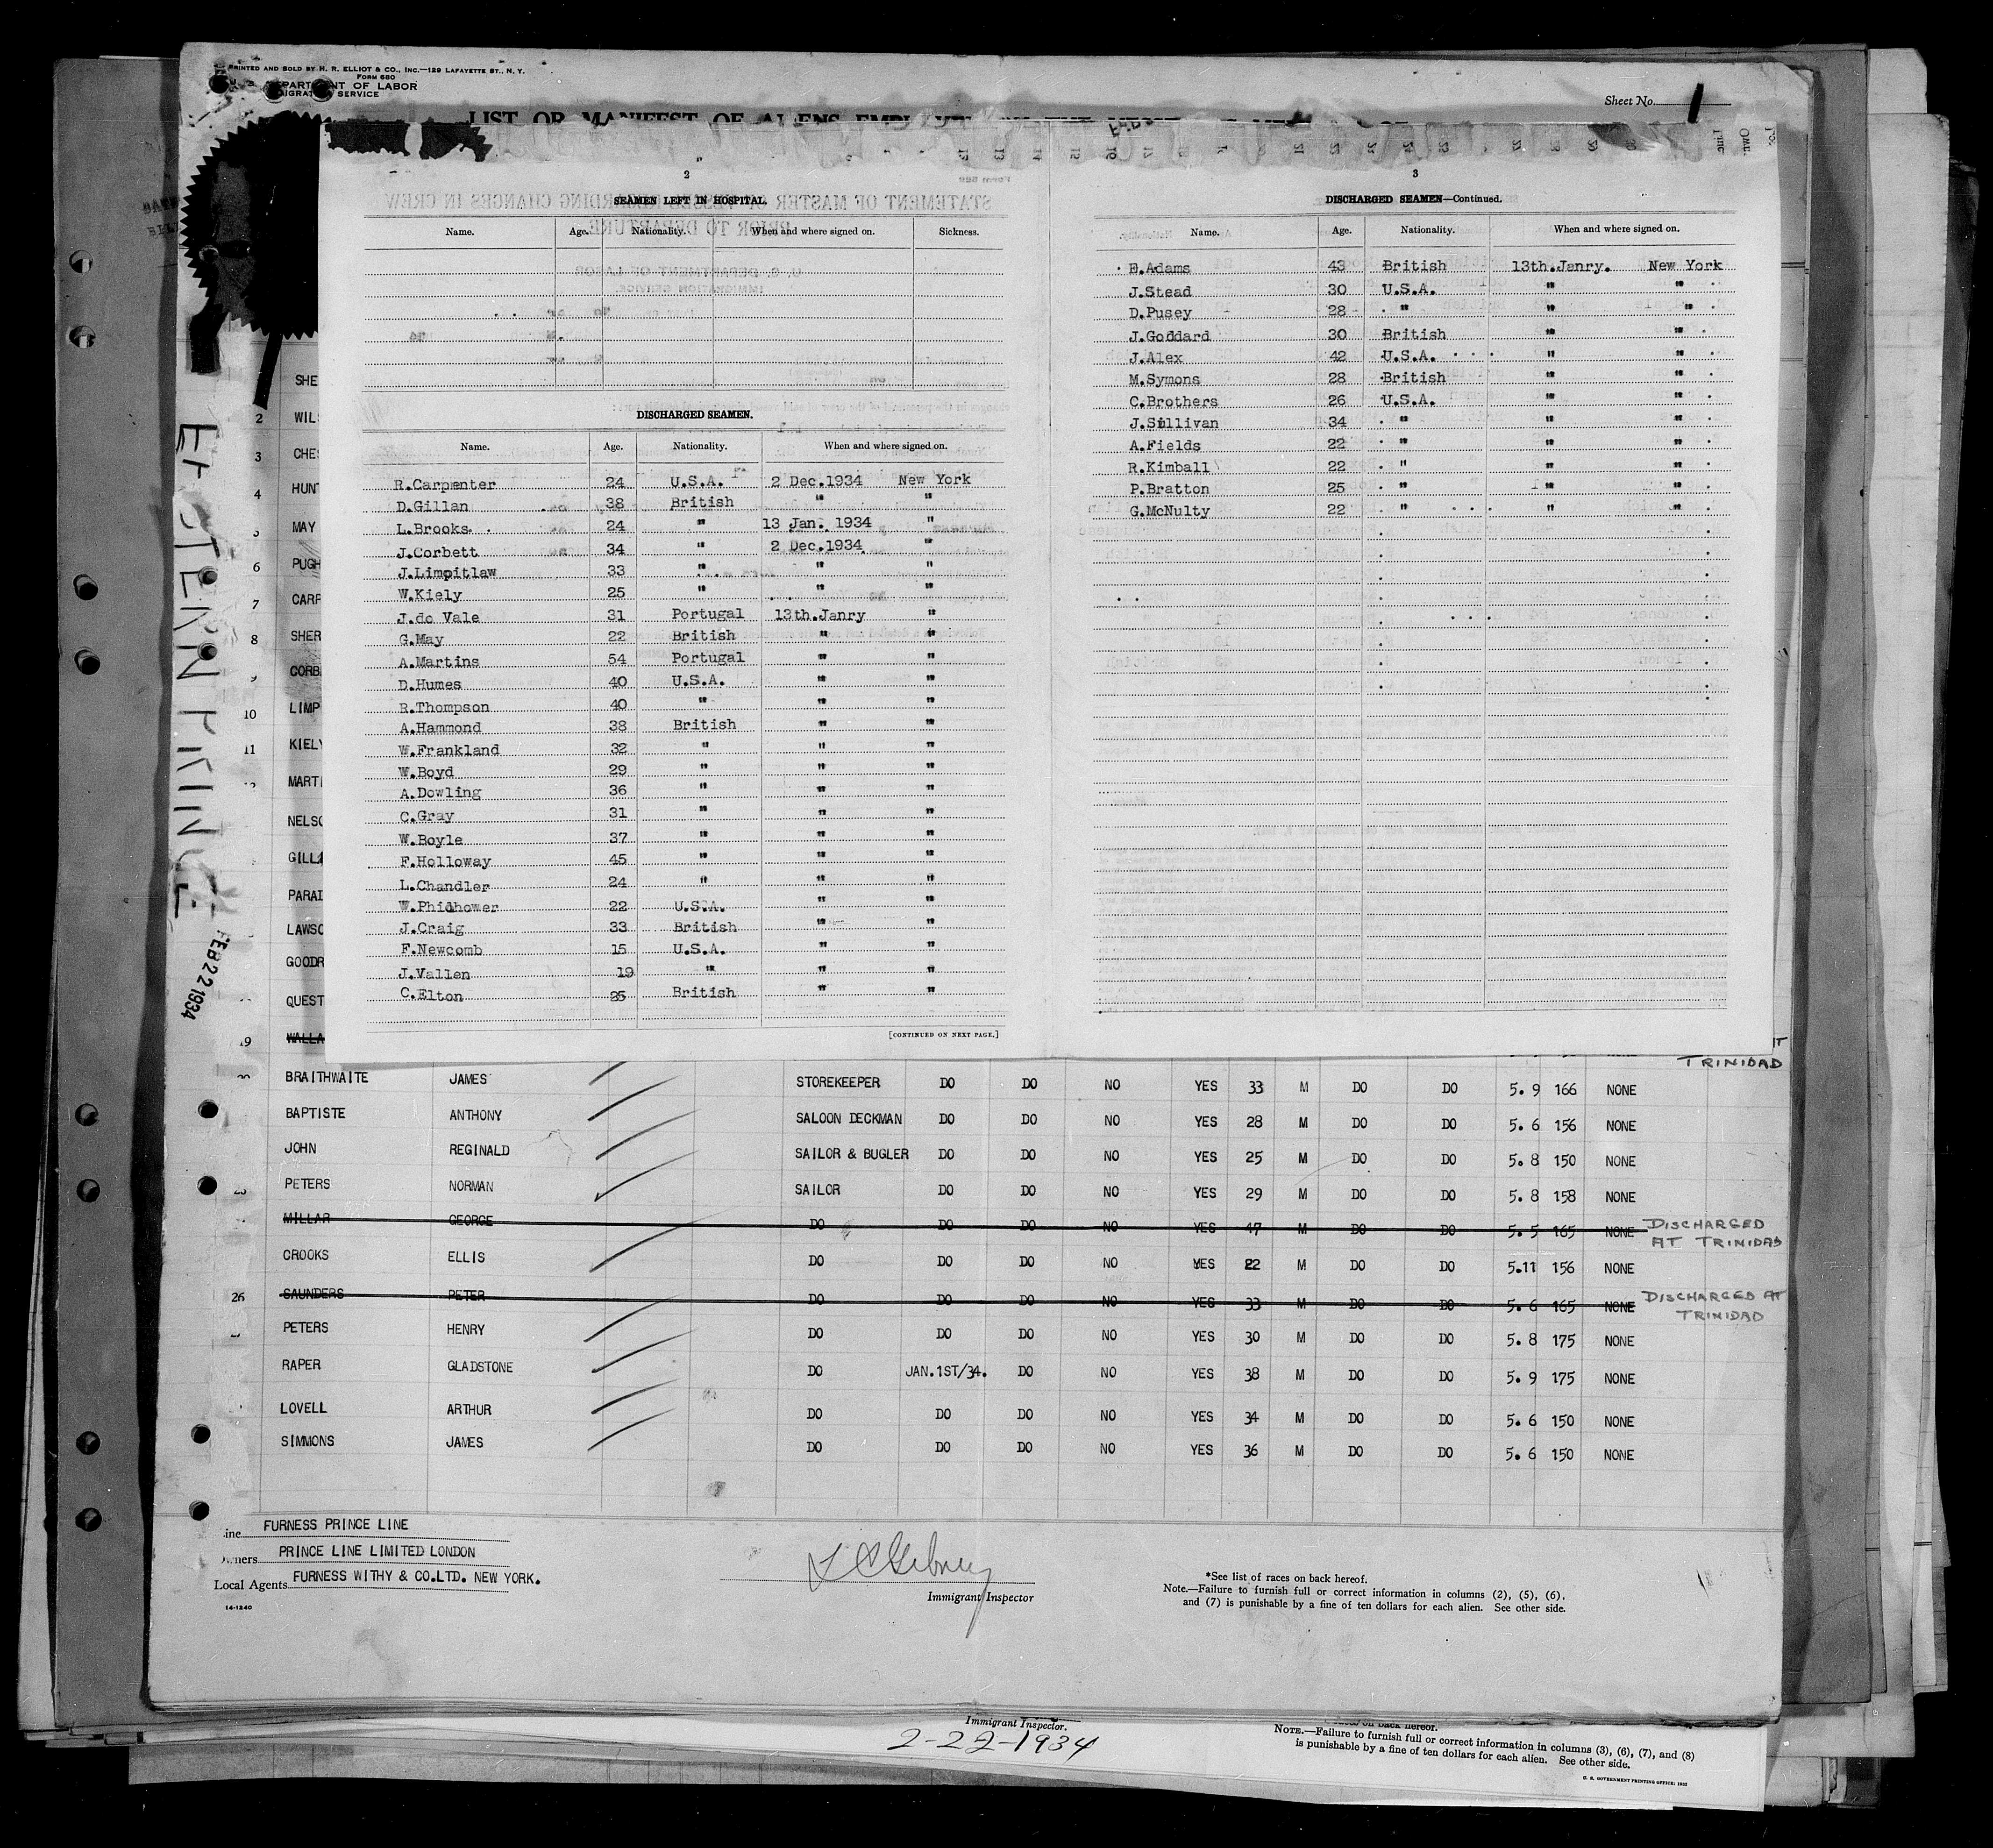 PRINTED AND SOLD BY H. R. ELLIOT & CO., INC.—129 LAFAYETTE ST., N. Y.
FORM 680
OF LABOR
SERVICE
Sheet No. 1
LIST OR MANIFEST OF ALIENS
2
SEAMEN LEFT IN HOSPITAL.
Name. Age. Nationality. When and where signed on. Sickness.
DISCHARGED SEAMEN.
Name. Age. Nationality. When and where signed on.
R.Carpenter 24 U.S.A. 2 Dec.1934 New York
D.Gillan 38 British " "
L.Brooks 24 " 13 Jan. 1934 "
J.Corbett 34 " 2 Dec.1934 "
J.Limpitlaw 33 " " "
W.Kiely 25 " " "
J.do Vale 31 Portugal 13th.Janry "
G.May 22 British " "
A.Martins 54 Portugal " "
D.Humes 40 U.S.A. " "
R.Thompson 40 " " "
A.Hammond 38 British " "
W.Frankland 32 " " "
W.Boyd 29 " " "
A.Dowling 36 " " "
C.Gray 31 " " "
W.Boyle 37 " " "
F.Holloway 45 " " "
L.Chandler 24 " " "
W.Phidhower 22 U.S.A. " "
J.Craig 33 British " "
F.Newcomb 15 U.S.A. " "
J.Vallen 19 " " "
C.Elton 25 British " "
[CONTINUED ON NEXT PAGE.]
3
DISCHARGED SEAMEN—Continued.
Name. Age. Nationality. When and where signed on.
E.Adams 43 British 13th.Janry. New York
J.Stead 30 U.S.A. " "
D.Pusey 28 " " "
J.Goddard 30 British " "
J.Alex 42 U.S.A. " "
M.Symons 28 British " "
C.Brothers 26 U.S.A. " "
J.Sullivan 34 " " "
A.Fields 22 " " "
R.Kimball 22 " " "
P.Bratton 25 " " "
G.McNulty 22 " " "
EASTERN PRINCE
FEB 22 1934
SHE
2 WIL
3 CHES
4 HUNT
5 MAY
6 PUGH
7 CARP
8 SHER
9 CORB
10 LIMP
11 KIELY
MARTI
NELSO
GILLA
PARAD
LAWSO
GOODR
QUEST
19 WALLA
TRINIDAD
BRAITHWAITE JAMES STOREKEEPER DO DO NO YES 33 M DO DO 5. 9 166 NONE
BAPTISTE ANTHONY SALOON DECKMAN DO DO NO YES 28 M DO DO 5. 6 156 NONE
JOHN REGINALD SAILOR & BUGLER DO DO NO YES 25 M DO DO 5. 8 150 NONE
PETERS NORMAN SAILOR DO DO NO YES 29 M DO DO 5. 8 158 NONE
MILLAR GEORGE DO DO DO NO YES 47 M DO DO 5. 5 165 NONE DISCHARGED
AT TRINIDAD
CROOKS ELLIS DO DO DO NO YES 22 M DO DO 5.11 156 NONE
26 SAUNDERS PETER DO DO DO NO YES 33 M DO DO 5. 6 165 NONE DISCHARGED AT
TRINIDAD
PETERS HENRY DO DO DO NO YES 30 M DO DO 5. 8 175 NONE
RAPER GLADSTONE DO JAN.1ST/34. DO NO YES 38 M DO DO 5. 9 175 NONE
LOVELL ARTHUR DO DO DO NO YES 34 M DO DO 5. 6 150 NONE
SIMMONS JAMES DO DO DO NO YES 36 M DO DO 5. 6 150 NONE
Line FURNESS PRINCE LINE
Owners PRINCE LINE LIMITED LONDON
Local Agents FURNESS WITHY & CO.LTD. NEW YORK.
14-1240
Immigrant Inspector
*See list of races on back hereof.
Note.—Failure to furnish full or correct information in columns (2), (5), (6),
and (7) is punishable by a fine of ten dollars for each alien. See other side.
Immigrant Inspector.
2-22-1934
on back hereof.
NOTE.—Failure to furnish full or correct information in columns (3), (6), (7), and (8)
is punishable by a fine of ten dollars for each alien. See other side.
U. S. GOVERNMENT PRINTING OFFICE: 1932